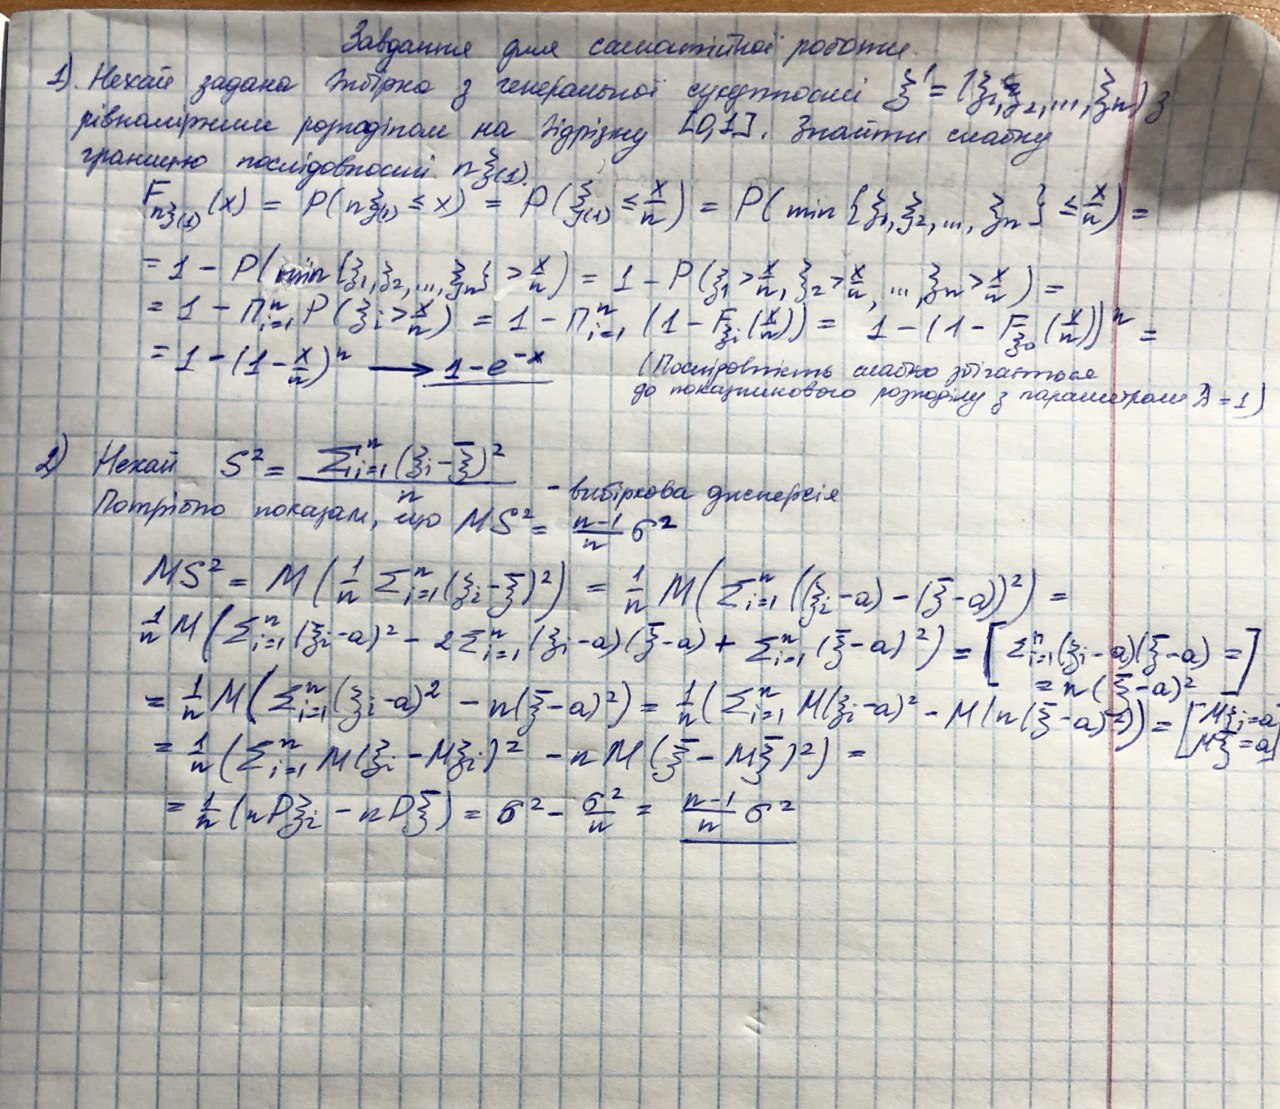 Завдання для самостійної роботи.
1). Нехай задана вибірка з генеральної сукупності ξ' = (ξ₁, ξ₂, ..., ξₙ) з
рівномірним розподілом на відрізку [0,1]. Знайти слабку
границю послідовності nξ₍₁₎.
F_{nξ₍₁₎}(x) = P(nξ₍₁₎ ≤ x) = P(ξ₍₁₎ ≤ x/n) = P(min{ξ₁, ξ₂, ..., ξₙ} ≤ x/n) =
= 1 - P(min{ξ₁, ξ₂, ..., ξₙ} > x/n) = 1 - P(ξ₁ > x/n, ξ₂ > x/n, ..., ξₙ > x/n) =
= 1 - Πⁿᵢ₌₁ P(ξᵢ > x/n) = 1 - Πⁿᵢ₌₁ (1 - F_{ξᵢ}(x/n)) = 1 - (1 - F_{ξ₀}(x/n))ⁿ =
= 1 - (1 - x/n)ⁿ → 1 - e⁻ˣ (Послідовність слабко збігається
до показникового розподілу з параметром λ = 1)
2) Нехай S² = Σⁿᵢ₌₁(ξᵢ - ξ̄)² / n - вибіркова дисперсія
Потрібно показати, що MS² = (n-1)/n σ²
MS² = M(1/n Σⁿᵢ₌₁(ξᵢ - ξ̄)²) = 1/n M(Σⁿᵢ₌₁((ξᵢ - a) - (ξ̄ - a))²) =
1/n M(Σⁿᵢ₌₁(ξᵢ - a)² - 2Σⁿᵢ₌₁(ξᵢ - a)(ξ̄ - a) + Σⁿᵢ₌₁(ξ̄ - a)²) = [Σⁿᵢ₌₁(ξᵢ - a)(ξ̄ - a) =
= n(ξ̄ - a)²]
= 1/n M(Σⁿᵢ₌₁(ξᵢ - a)² - n(ξ̄ - a)²) = 1/n (Σⁿᵢ₌₁ M(ξᵢ - a)² - M(n(ξ̄ - a)²)) = [Mξᵢ = a
Mξ̄ = a]
= 1/n (Σⁿᵢ₌₁ M(ξᵢ - Mξᵢ)² - nM(ξ̄ - Mξ̄)²) =
= 1/n (nDξᵢ - nDξ̄) = σ² - σ²/n = (n-1)/n σ²